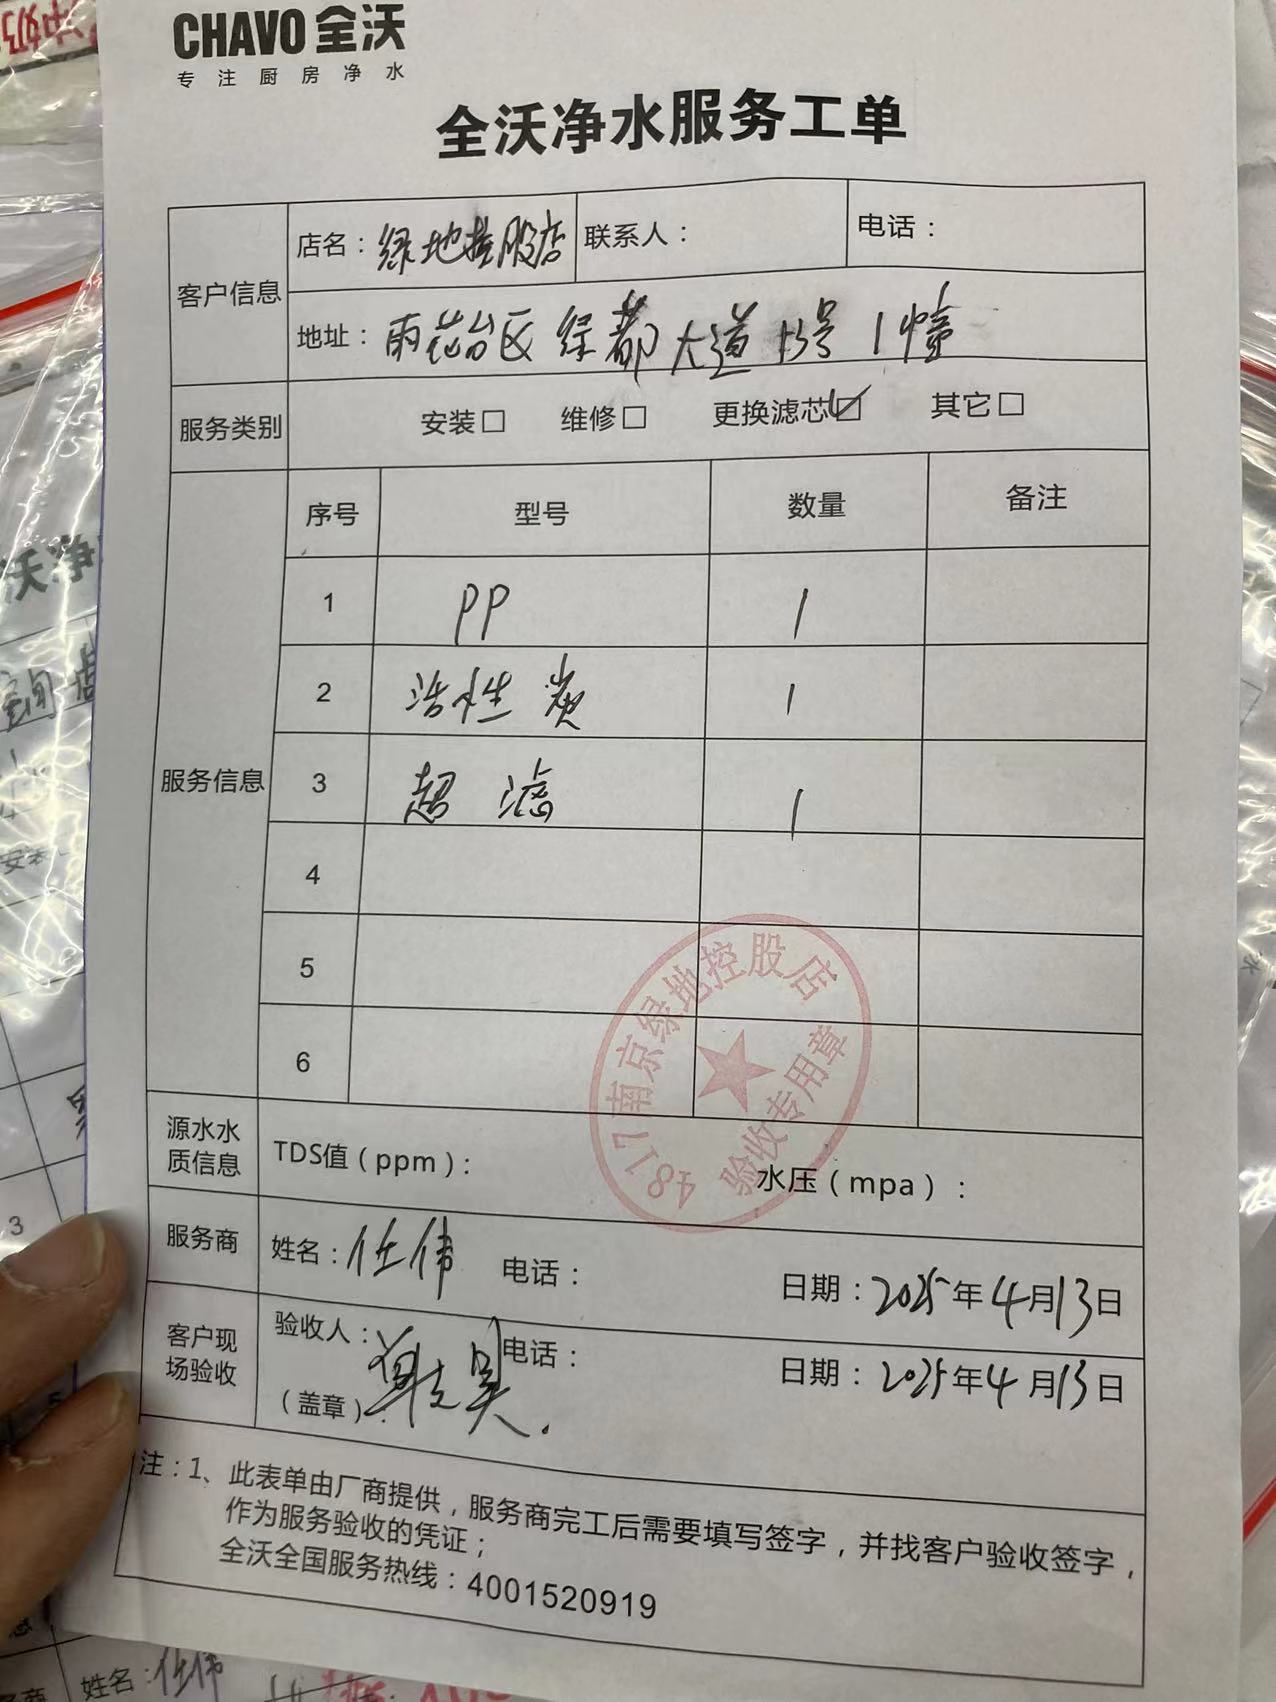 CHAVO 全沃
专注厨房净水
全沃净水服务工单
客户信息
店名：绿地控股店 联系人： 电话：
地址：雨花台区绿都大道13号1幢
服务类别 安装□ 维修□ 更换滤芯☑ 其它□
服务信息
序号 型号 数量 备注
1 PP 1
2 活性炭 1
3 超滤 1
4
5
6
4817南京绿地控股店
验收专用章
源水水质信息 TDS值（ppm）： 水压（mpa）：
服务商 姓名：任伟 电话： 日期：2025年4月13日
客户现场验收 验收人： 电话： 日期：2025年4月13日
（盖章）
注：1、此表单由厂商提供，服务商完工后需要填写签字，并找客户验收签字，
作为服务验收的凭证；
全沃全国服务热线：4001520919
姓名：任伟